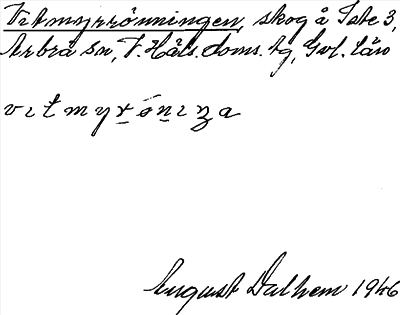 Vitmyrrönningen, skog å Iste 3,
Arbrå sn, V. Häls. doms. tg, Gvl. län
vıtmyrönıŋa
August Dalhem 1946